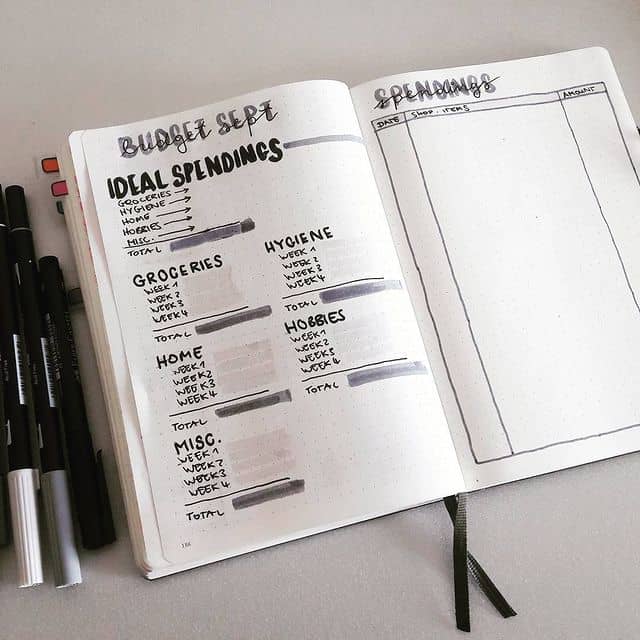 BUDGET SEPT
Budget Sept
IDEAL SPENDINGS
GROCERIES →
HYGIENE →
HOME →
HOBBIES →
MISC. →
TOTAL
GROCERIES
WEEK 1
WEEK 2
WEEK 3
WEEK 4
TOTAL
HOME
WEEK 1
WEEK 2
WEEK 3
WEEK 4
TOTAL
MISC.
WEEK 1
WEEK 2
WEEK 3
WEEK 4
TOTAL
HYGIENE
WEEK 1
WEEK 2
WEEK 3
WEEK 4
TOTAL
HOBBIES
WEEK 1
WEEK 2
WEEK 3
WEEK 4
TOTAL
SPENDINGS
spendings
DATE SHOP + ITEMS AMOUNT